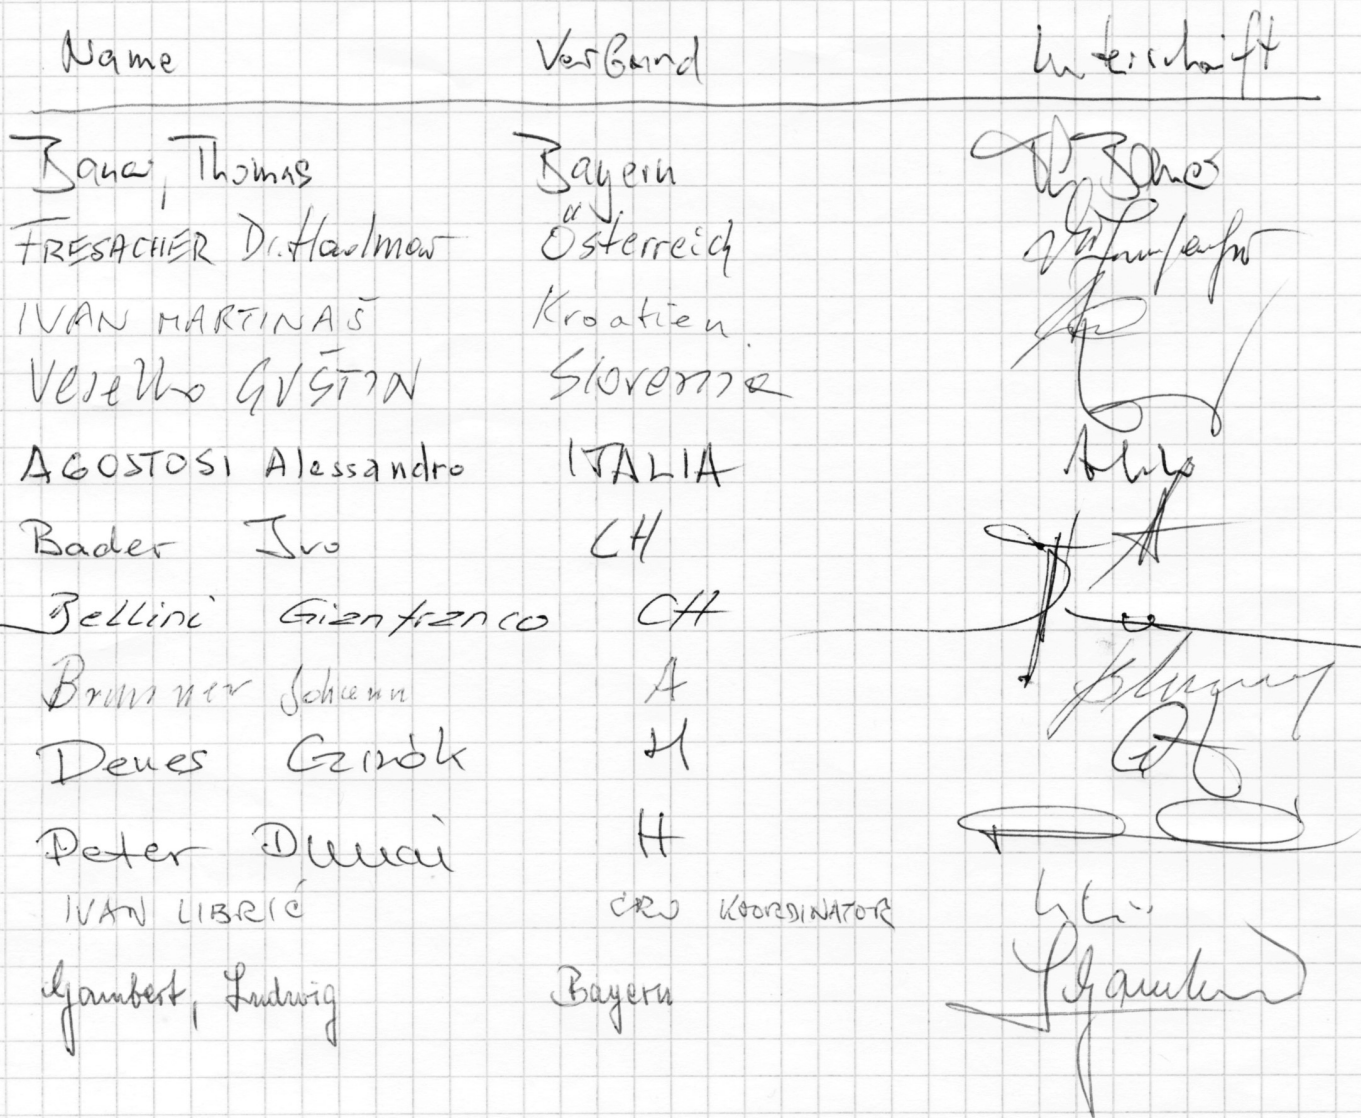 Name Verband Unterschrift
Bauer, Thomas Bayern
FRESACHER Dr. Hadmar Österreich
IVAN MARTINAŠ Kroatien
Veselko GUŠTIN Slovenija
AGOSTOSI Alessandro ITALIA
Bader Ivo CH
Bellini Gianfranco CH
Brunner Johann A
Denes H
Peter Dunai H
IVAN LIBRIĆ CRO KOORDINATOR
Gambert, Ludwig Bayern